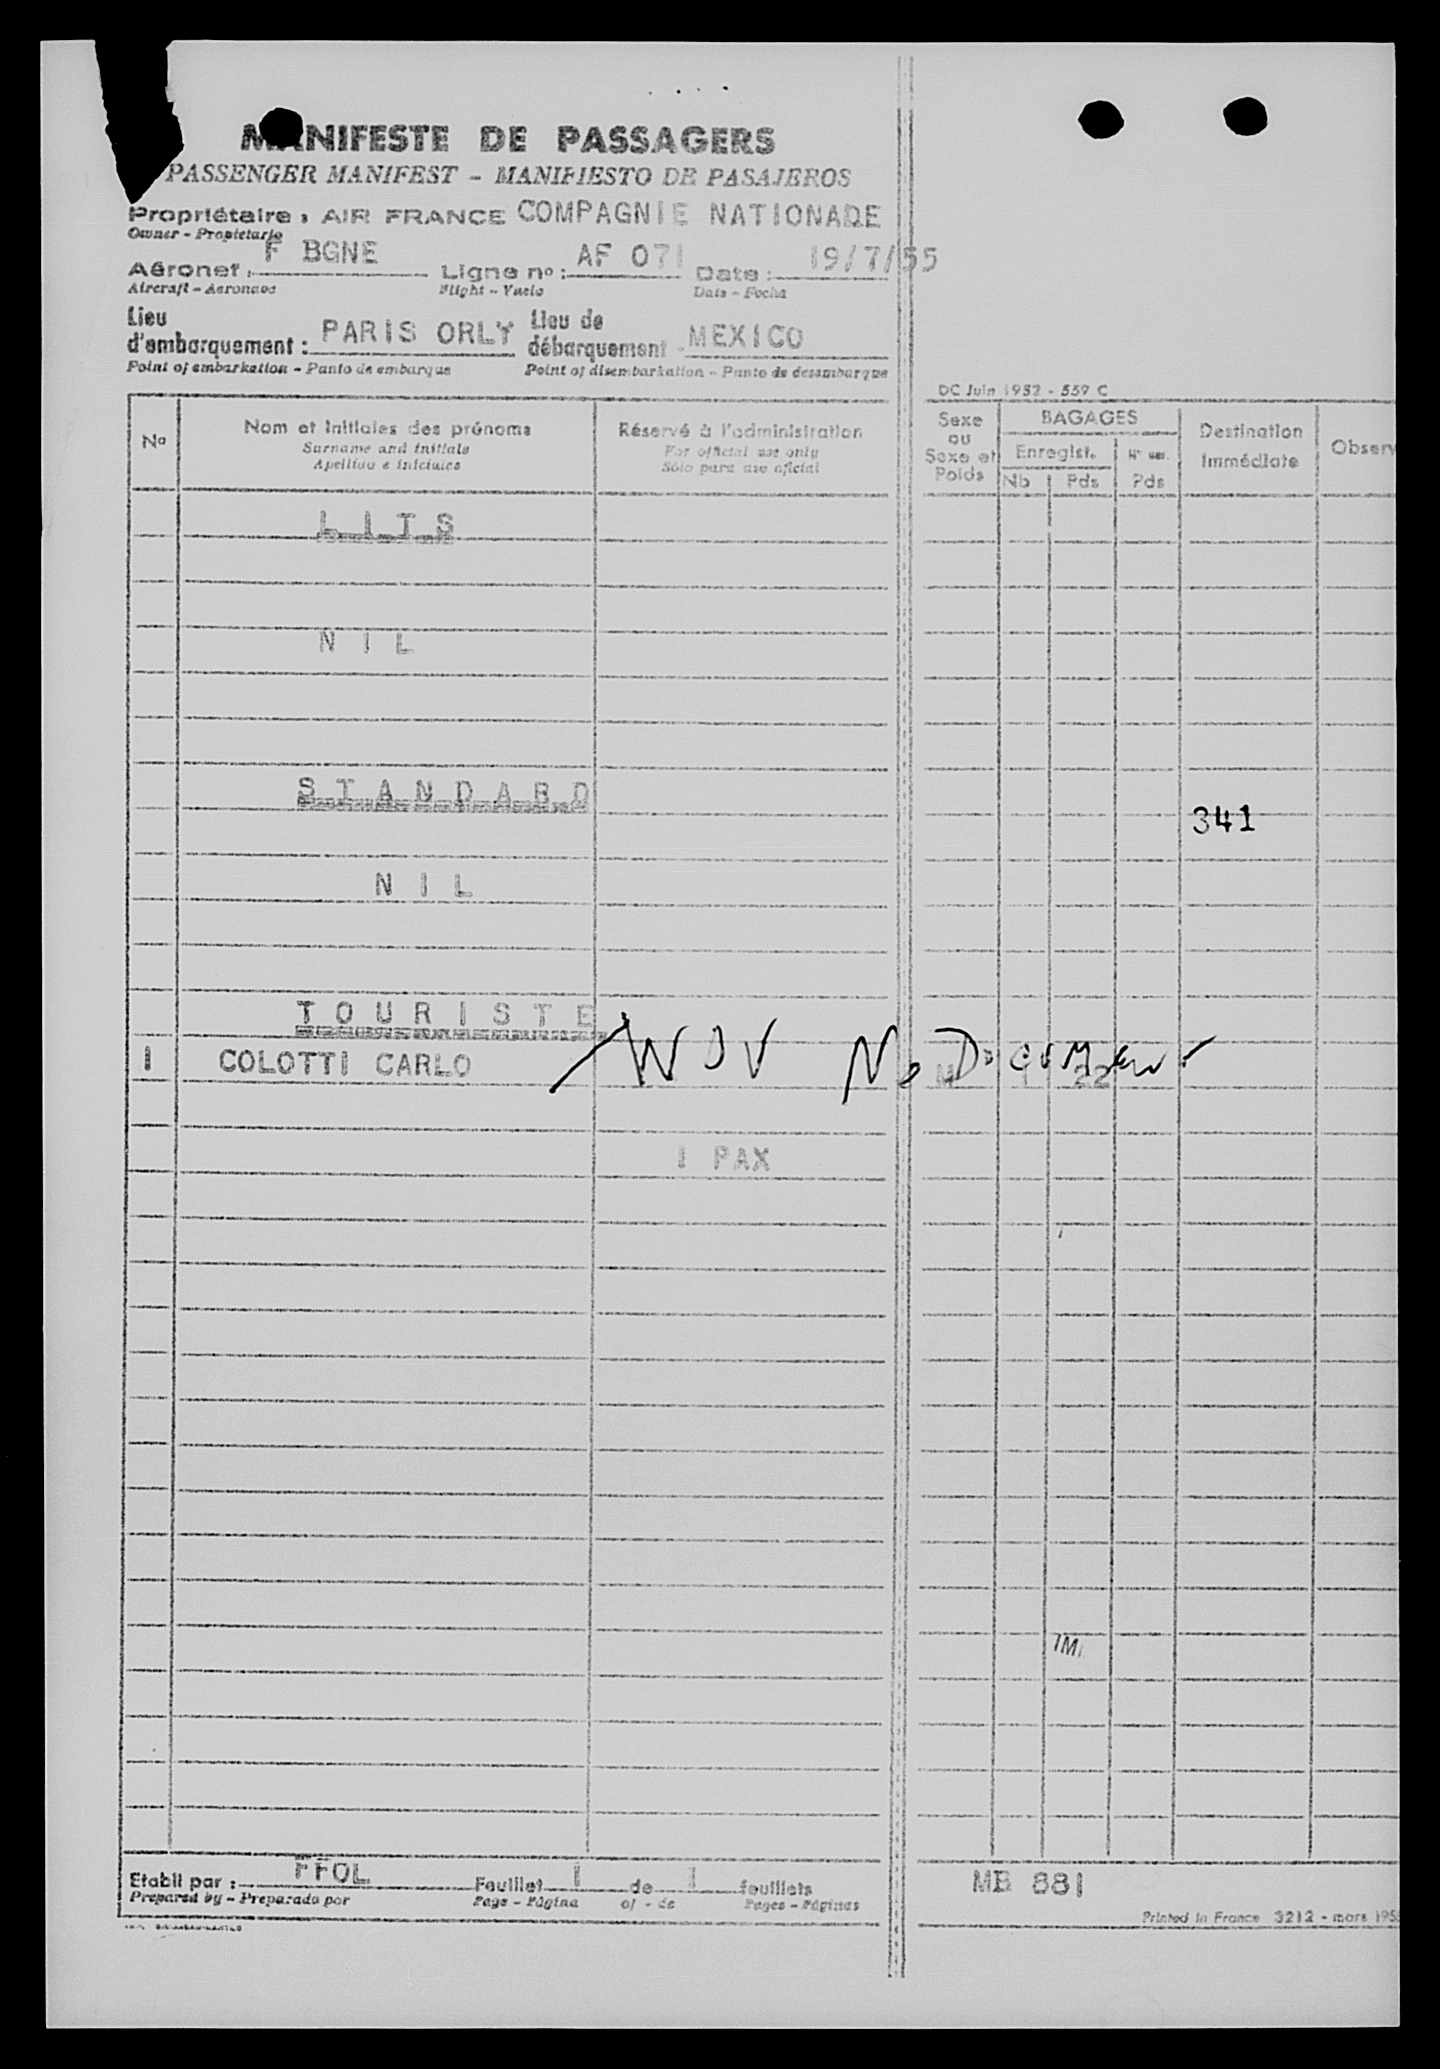 MANIFESTE DE PASSAGERS
PASSENGER MANIFEST - MANIFIESTO DE PASAJEROS
Propriétaire : AIR FRANCE COMPAGNIE NATIONALE
Owner - Propietario
Aéronef : F BGNE Ligne nº : AF 071 Date : 19/7/55
Aircraft - Aeronave Flight - Vuelo Date - Fecha
Lieu d'embarquement : PARIS ORLY Lieu de débarquement MEXICO
Point of embarkation - Punto de embarque Point of disembarkation - Punto de desembarque
DC Juin 1952 - 559 C
Nº Nom et initiales des prénoms Réservé à l'administration Sexe ou Sexe et Poids BAGAGES Destination immédiate Observ
Surname and initials For official use only Enregist.
Apellido e iniciales Sólo para uso oficial Nb Pds Pds
LITS
NIL
STANDARD
341
NIL
TOURISTE
1 COLOTTI CARLO WOV No Document M 1 22
1 PAX
IM
Etabli par : FFOL Feuillet 1 de 1 feuillets MB 881
Prepared by - Preparado por Page - Página of - de Pages - Páginas
Printed in France 3212 - mars 195